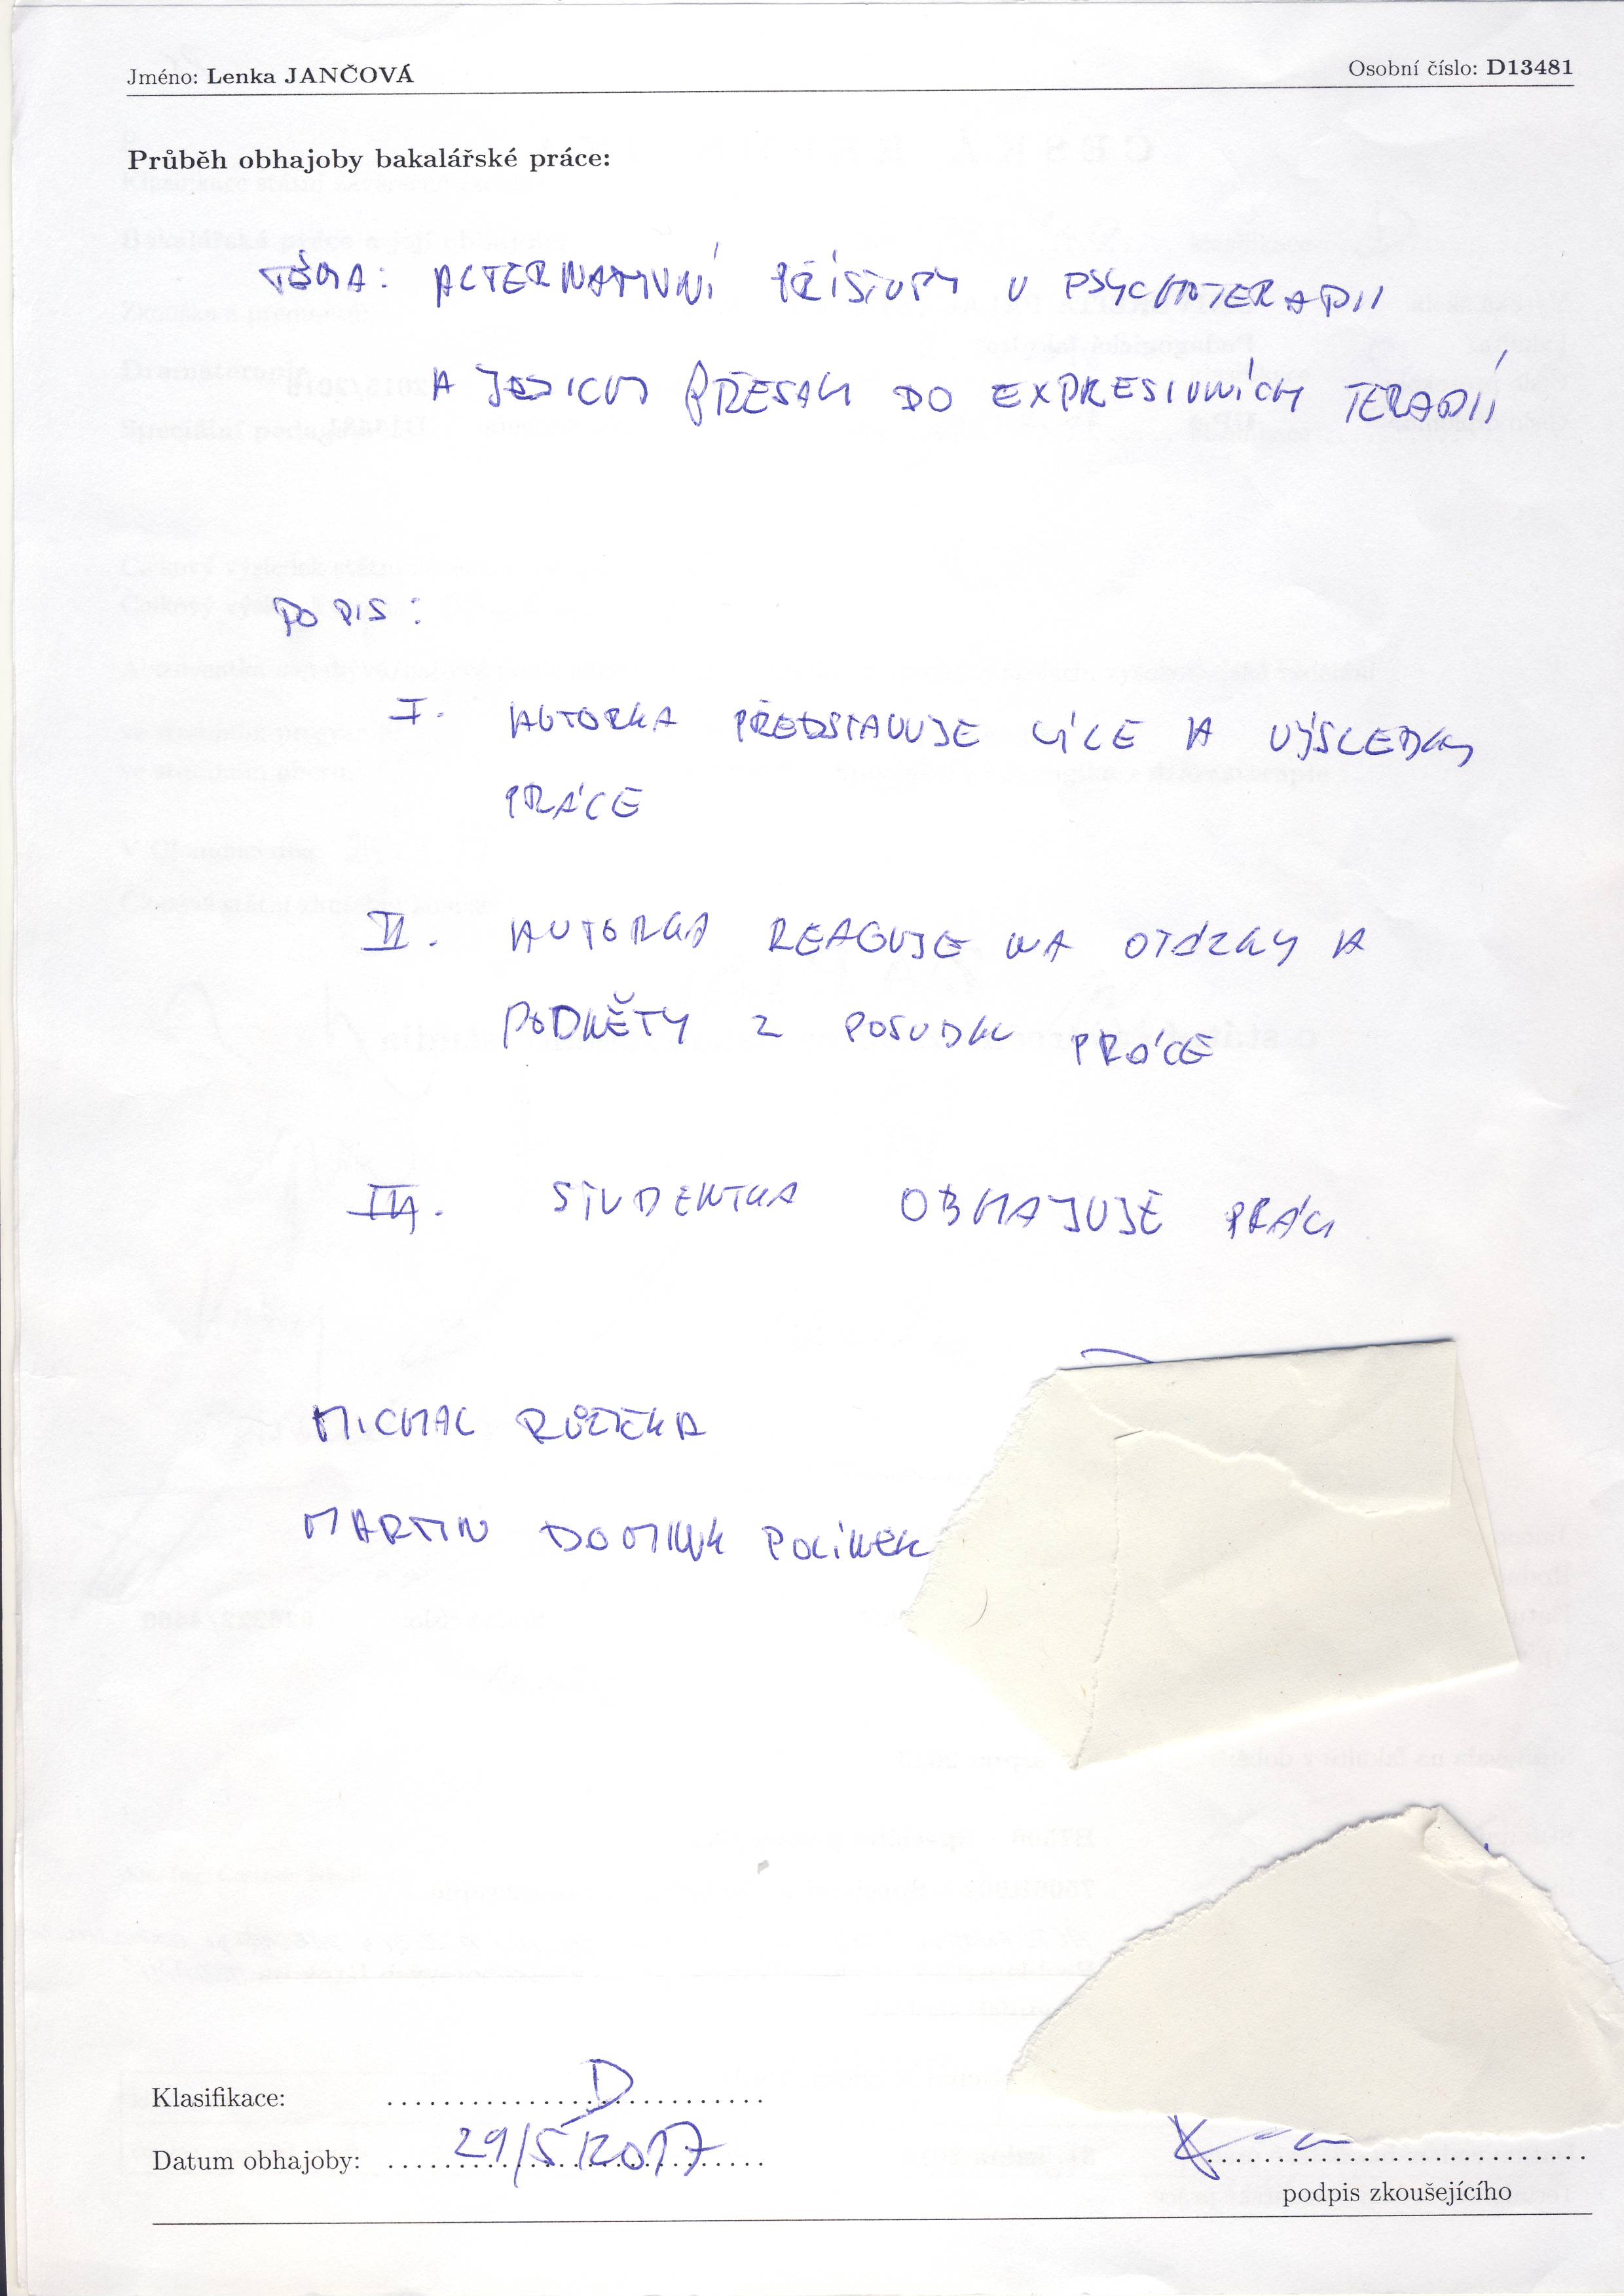 Jméno: Lenka JANČOVÁ
Osobní číslo: D13481
Průběh obhajoby bakalářské práce:
TÉMA: ALTERNATIVNÍ PŘÍSTUPY V PSYCHOTERAPII
A JEJICH PŘESAH DO EXPRESIVNÍCH TERAPIÍ
POPIS:
I. AUTORKA PŘEDSTAVUJE CÍLE A VÝSLEDKY
PRÁCE
II. AUTORKA REAGUJE NA OTÁZKY A
PODNĚTY Z POSUDKU PRÁCE
III. STUDENTKA OBHAJUJE PRÁCI
MICHAL RŮŽIČKA
MARTIN DOMINIK POLÍNEK
Klasifikace: D
Datum obhajoby: 29/5/2017
podpis zkoušejícího